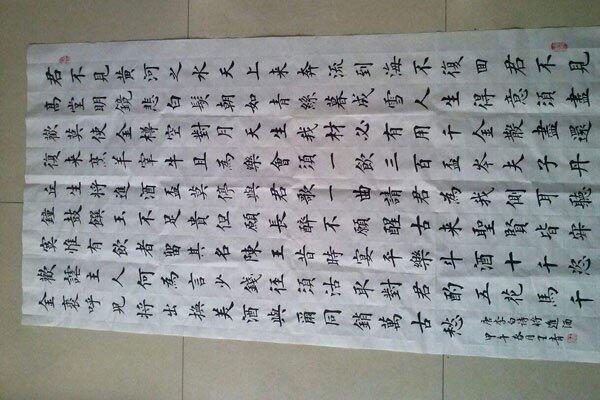 君不見黄河之水天上来奔流到海不復回君不見
高堂明鏡悲白髮朝如青絲暮成雪人生得意須盡
歡莫使金樽空對月天生我材必有用千金散盡還
復来烹羊宰牛且為樂會須一飲三百盃岑夫子丹
丘生將進酒盃莫停與君歌一曲請君為我側耳聽
鐘鼓饌玉不足貴但願長醉不願醒古来聖賢皆寂
寞惟有飲者留其名陳王昔時宴平樂斗酒十千恣
歡謔主人何為言少錢徑須沽取對君酌五花馬千
金裘呼兒將出換美酒與爾同銷萬古愁
唐李白詩將進酒
甲午春月王青